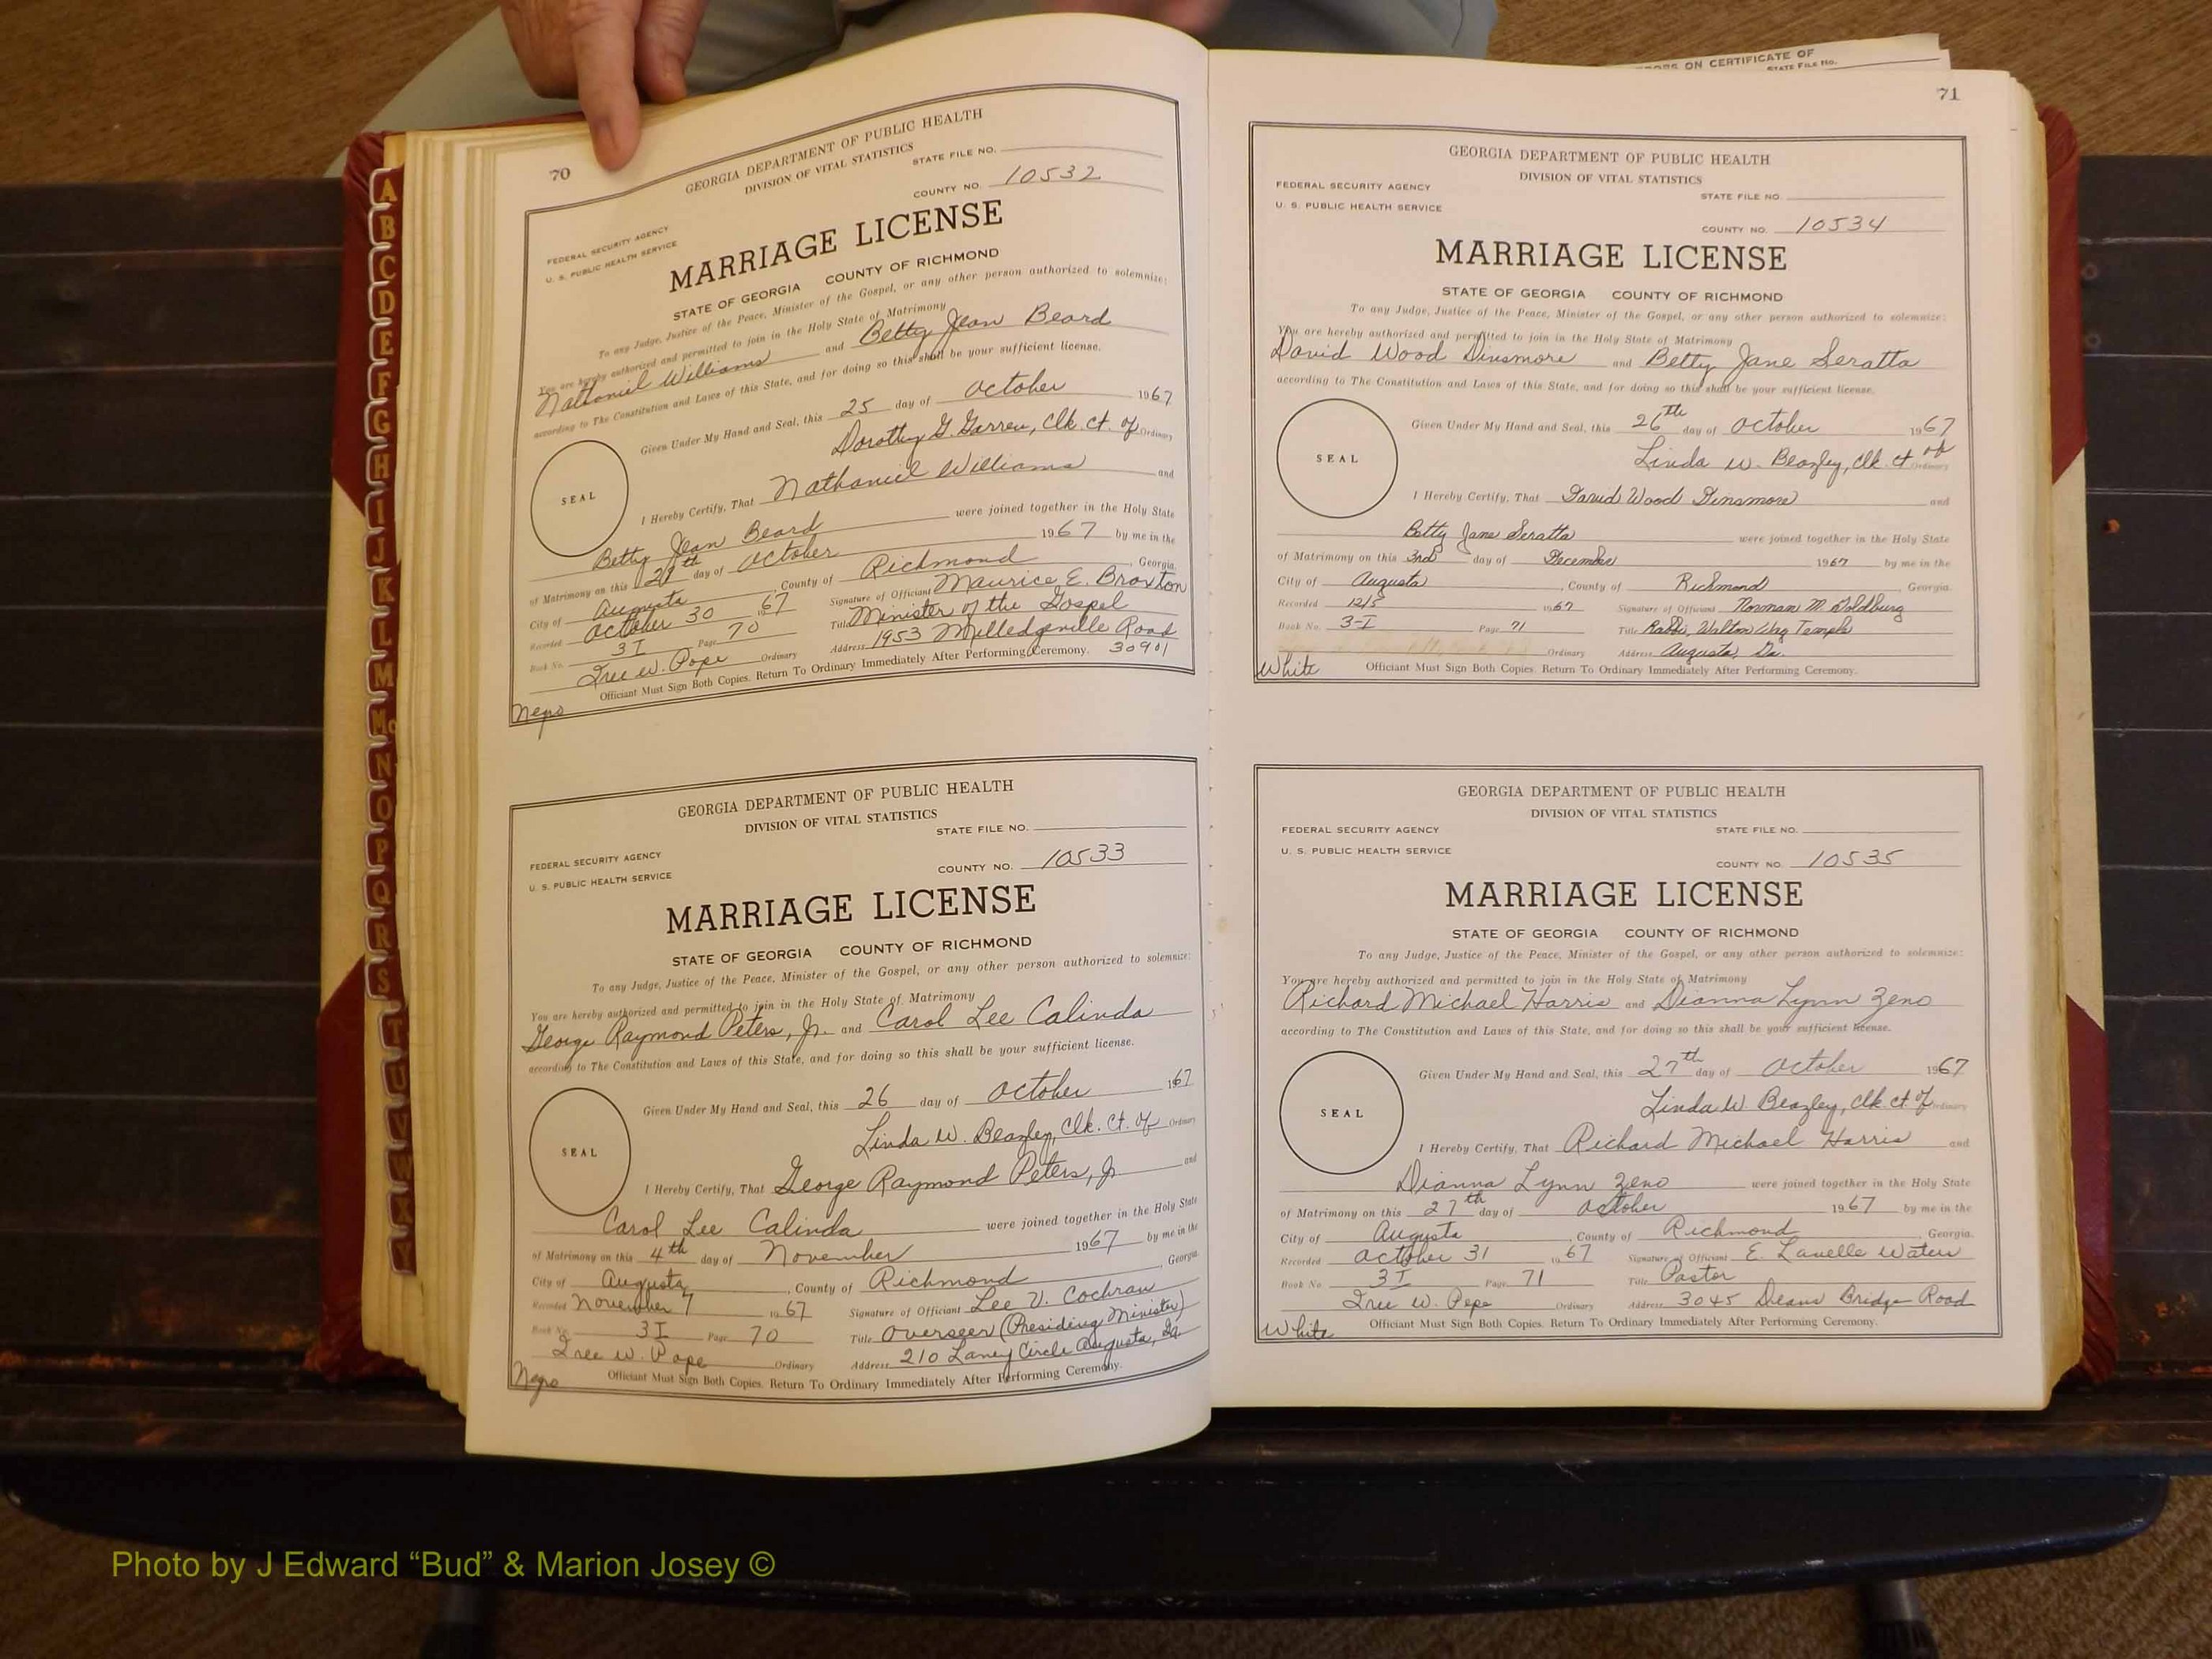 ORS ON CERTIFICATE OF
STATE FILE NO.
A
B
C
D
E
F
G
H
I
J
K
L
M
Mc
N
O
P
Q
R
S
T
U
V
W
X
Y
70
GEORGIA DEPARTMENT OF PUBLIC HEALTH
DIVISION OF VITAL STATISTICS
STATE FILE NO.
FEDERAL SECURITY AGENCY
U. S. PUBLIC HEALTH SERVICE
COUNTY NO. 10532
MARRIAGE LICENSE
STATE OF GEORGIA COUNTY OF RICHMOND
To any Judge, Justice of the Peace, Minister of the Gospel, or any other person authorized to solemnize:
You are hereby authorized and permitted to join in the Holy State of Matrimony
Nathaniel Williams and Betty Jean Beard
according to The Constitution and Laws of this State, and for doing so this shall be your sufficient license.
Given Under My Hand and Seal, this 25 day of October 1967
Dorothy G. Clk. Ct. of Ordinary
SEAL
I Hereby Certify, That Nathaniel Williams and
Betty Jean Beard were joined together in the Holy State
of Matrimony on this day of October 1967 by me in the
City of Augusta, County of Richmond, Georgia.
Recorded October 30 1967 Signature of Officiant Maurice E. Braxton
Book No. 3I Page 70 Title Minister of the Gospel
Tree W. Pope Ordinary Address 1953 Milledgeville Road 30901
Officiant Must Sign Both Copies. Return To Ordinary Immediately After Performing Ceremony.
Negro
GEORGIA DEPARTMENT OF PUBLIC HEALTH
DIVISION OF VITAL STATISTICS
STATE FILE NO.
FEDERAL SECURITY AGENCY
U. S. PUBLIC HEALTH SERVICE
COUNTY NO. 10533
MARRIAGE LICENSE
STATE OF GEORGIA COUNTY OF RICHMOND
To any Judge, Justice of the Peace, Minister of the Gospel, or any other person authorized to solemnize:
You are hereby authorized and permitted to join in the Holy State of Matrimony
George Raymond Peters, Jr. and Carol Lee Calinda
according to The Constitution and Laws of this State, and for doing so this shall be your sufficient license.
Given Under My Hand and Seal, this 26 day of October 1967
Linda W. Beazley, Clk. Ct. of Ordinary
SEAL
I Hereby Certify, That George Raymond Peters, Jr and
Carol Lee Calinda were joined together in the Holy State
of Matrimony on this 4th day of November 1967 by me in the
City of Augusta, County of Richmond, Georgia.
Recorded November 7 1967 Signature of Officiant Lee V. Cochran
Book No. 3I Page 70 Title Overseer (Presiding Minister)
Tree W. Pope Ordinary Address 210 Laney Circle Augusta, Ga
Officiant Must Sign Both Copies. Return To Ordinary Immediately After Performing Ceremony.
Negro
71
GEORGIA DEPARTMENT OF PUBLIC HEALTH
DIVISION OF VITAL STATISTICS
FEDERAL SECURITY AGENCY
STATE FILE NO.
U. S. PUBLIC HEALTH SERVICE
COUNTY NO. 10534
MARRIAGE LICENSE
STATE OF GEORGIA COUNTY OF RICHMOND
To any Judge, Justice of the Peace, Minister of the Gospel, or any other person authorized to solemnize:
You are hereby authorized and permitted to join in the Holy State of Matrimony
David Wood Dinsmore and Betty Jane Seratta
according to The Constitution and Laws of this State, and for doing so this shall be your sufficient license.
Given Under My Hand and Seal, this 26th day of October 1967
Linda W. Beazley, Clk. Ct of Ordinary
SEAL
I Hereby Certify, That David Wood Dinsmore and
Betty Jane Seratta were joined together in the Holy State
of Matrimony on this 3rd day of December 1967 by me in the
City of Augusta, County of Richmond, Georgia.
Recorded 12/5 1967 Signature of Officiant Norman M. Goldburg
Book No. 3-I Page 71 Title Rabbi, Walton Way Temple
Ordinary Address Augusta, Ga.
Officiant Must Sign Both Copies. Return To Ordinary Immediately After Performing Ceremony.
White
GEORGIA DEPARTMENT OF PUBLIC HEALTH
DIVISION OF VITAL STATISTICS
FEDERAL SECURITY AGENCY
STATE FILE NO.
U. S. PUBLIC HEALTH SERVICE
COUNTY NO. 10535
MARRIAGE LICENSE
STATE OF GEORGIA COUNTY OF RICHMOND
To any Judge, Justice of the Peace, Minister of the Gospel, or any other person authorized to solemnize:
You are hereby authorized and permitted to join in the Holy State of Matrimony
Richard Michael Harris and Dianna Lynn Zeno
according to The Constitution and Laws of this State, and for doing so this shall be your sufficient license.
Given Under My Hand and Seal, this 27th day of October 1967
Linda W. Beazley, Clk. Ct. of Ordinary
SEAL
I Hereby Certify, That Richard Michael Harris and
Dianna Lynn Zeno were joined together in the Holy State
of Matrimony on this 27th day of October 1967 by me in the
City of Augusta, County of Richmond, Georgia.
Recorded October 31 1967 Signature of Officiant E. Lavelle Waters
Book No. 3I Page 71 Title Pastor
Tree W. Pope Ordinary Address 3045 Deans Bridge Road
Officiant Must Sign Both Copies. Return To Ordinary Immediately After Performing Ceremony.
White
Photo by J Edward “Bud” & Marion Josey ©